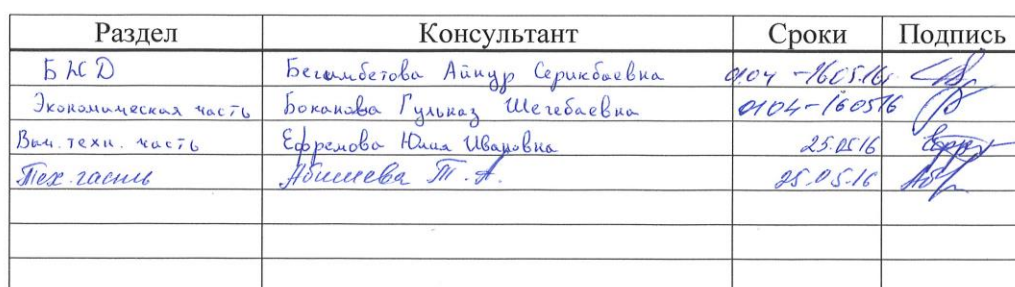 Раздел Консультант Сроки Подпись
БЖД Бегимбетова Айнур Серикбаевна 0104 - 160516
Экономическая часть Боканова Гульназ Шегебаевна 0104 - 160516
Выч. техн. часть Ефремова Юлия Ивановна 25.05.16
Тех. часть Абишева Т. А. 25.05.16